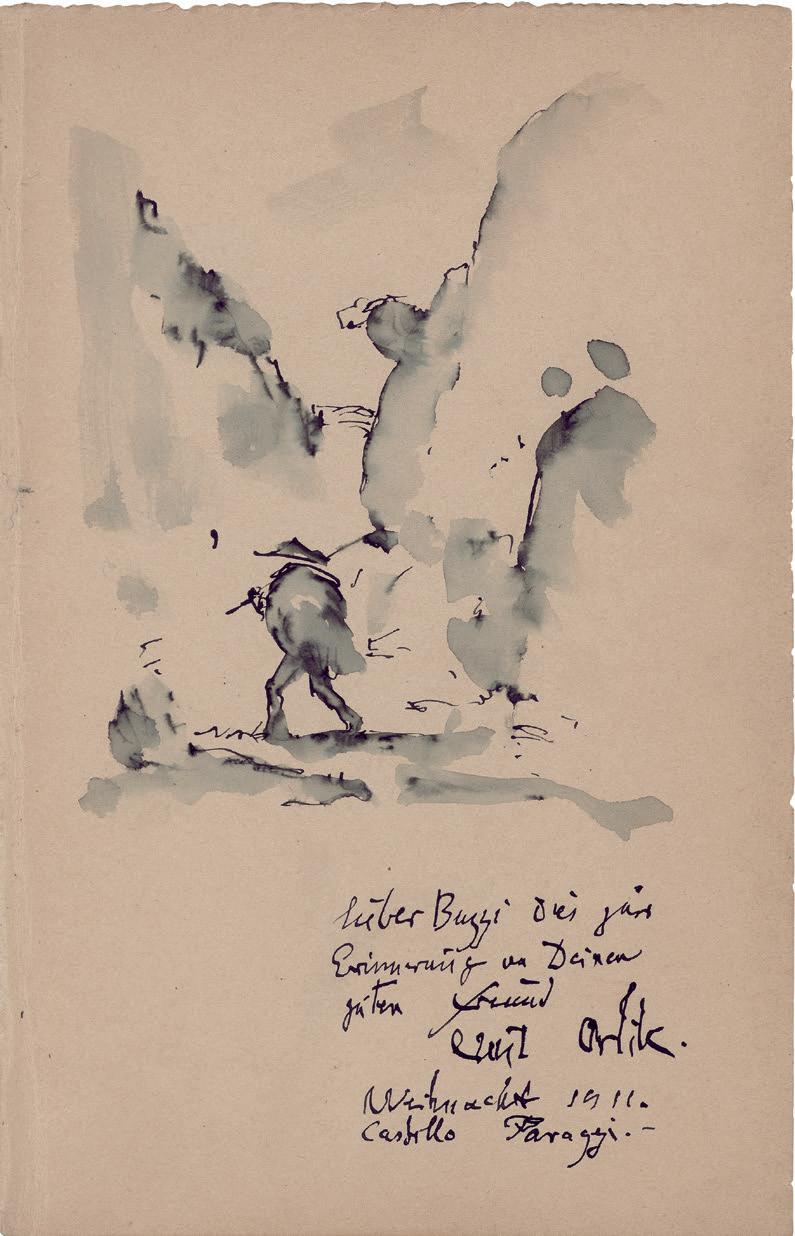 lieber Buzzi dies zur
Erinnerung an Deinen
guten Freund
Emil Orlik.
Weihnacht 1911.
Castello Paraggi.-